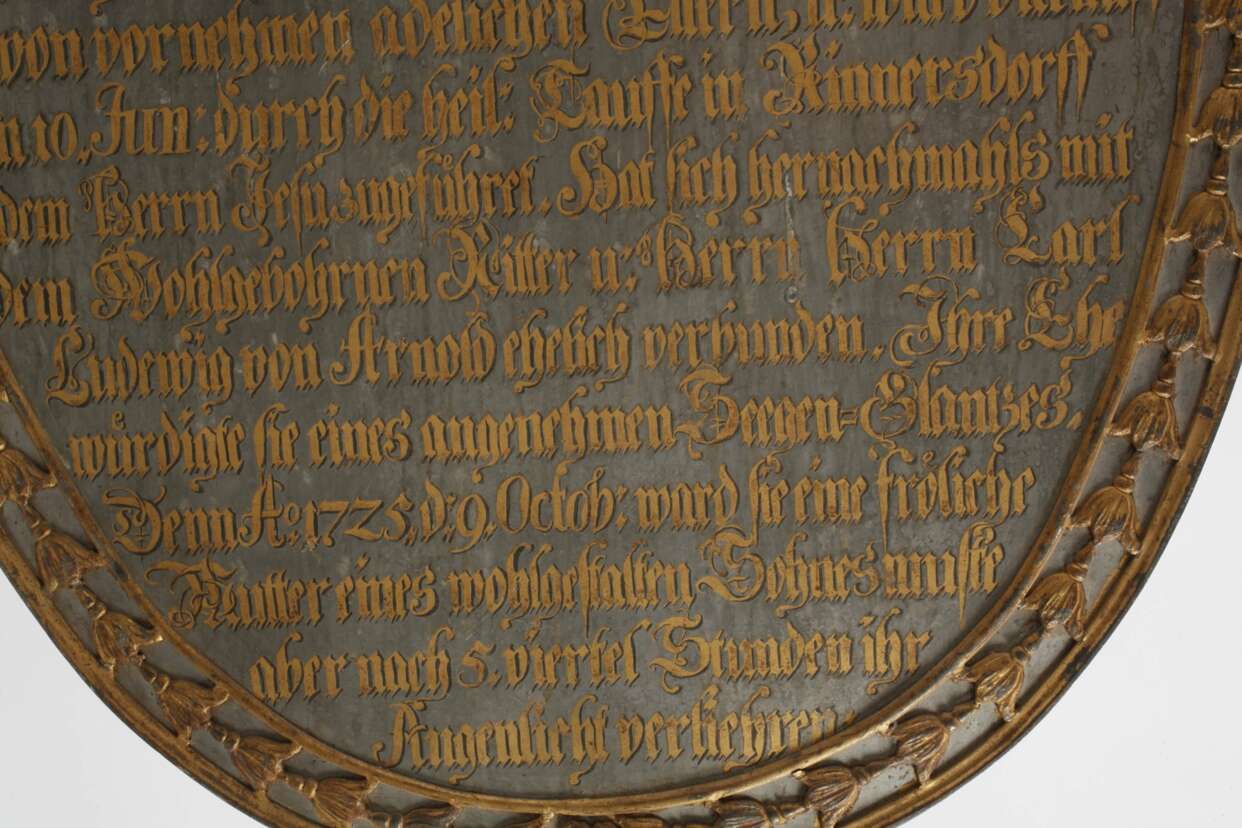 von vornehmen adelichen Eltern, u: ward darauf
n 10. Jun: durch die heil: Tauffe in Rinnersdorff
dem Herrn Jesu zugeführet. Hat sich hernachmahls mit
dem Wohlgebohrnen Ritter u: Herrn Herrn Carl
Ludewig von Arnold ehelich verbunden. Ihre Ehe
würdigte sie eines angenehmen Seegen-Glantzes.
Denn Ao: 1725. d: 9. Octob: ward sie eine fröliche
Mutter eines wohlgestalten Sohnes muste
aber nach 5. viertel Stunden ihr
Augenlicht verliehren.